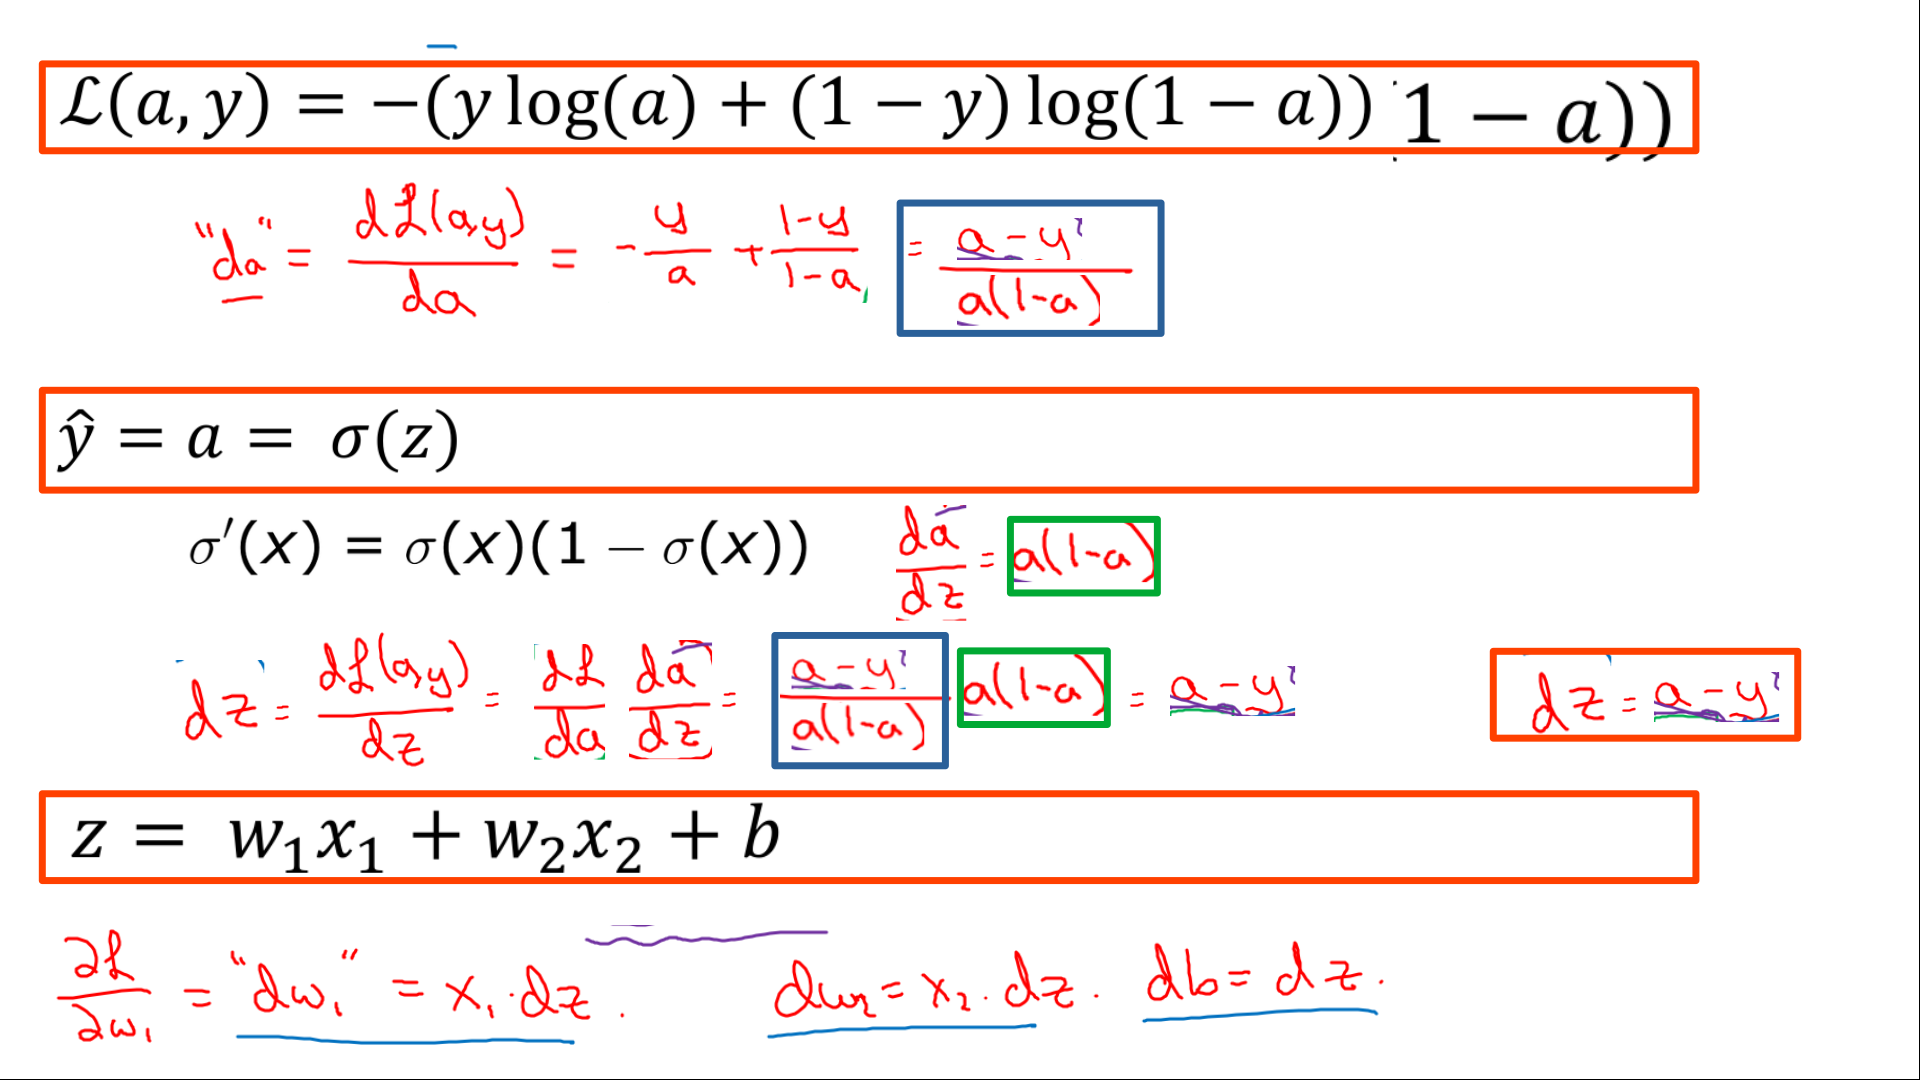 ℒ(a, y) = −(y log(a) + (1 − y) log(1 − a)) 1 − a))
"da" = dℒ(a,y)/da = - y/a + 1-y/1-a = a - y/a(1-a)
ŷ = a = σ(z)
σ′(x) = σ(x)(1 − σ(x)) da/dz = a(1-a)
dz = dℒ(a,y)/dz = dℒ/da da/dz = a - y/a(1-a) a(1-a) = a - y dz = a - y
z = w₁x₁ + w₂x₂ + b
∂ℒ/∂w₁ = "dw₁" = x₁·dz. dw₂ = x₂·dz. db = dz.